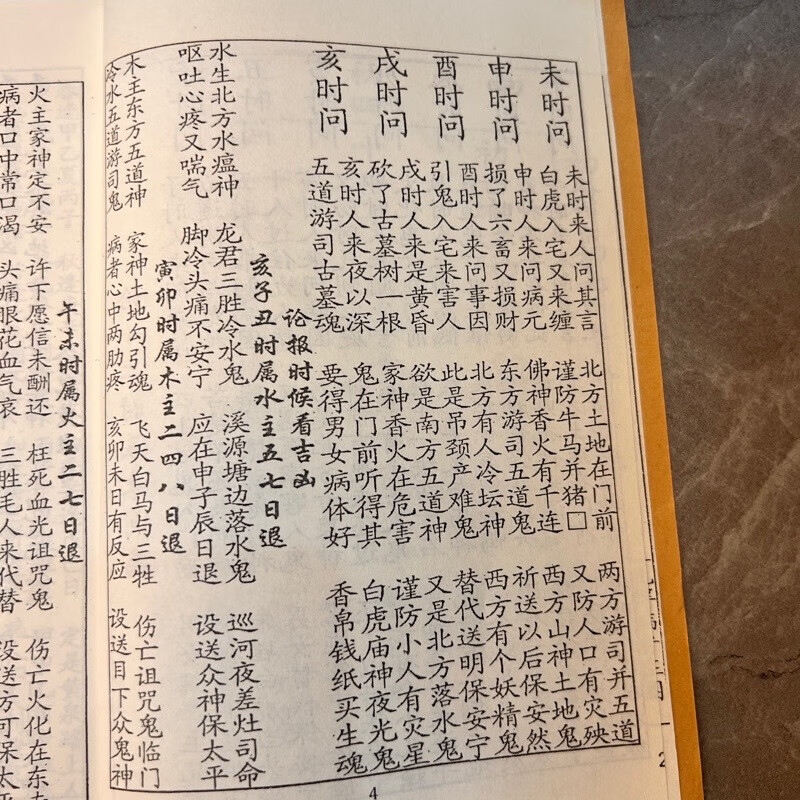 未时问
未时来人问其言 北方土地在门前 两方游司并五道
白虎入宅又来缠 谨防牛马并猪□ 又防人口有灾殃
申时问
申时人来问病元 佛神香火有千连 西方山神土地鬼
损了六畜又损财 东方游司五道鬼 祈送以后保安然
酉时问
酉时人来问事因 北方有人冷坛神 西方有个妖精鬼
引鬼入宅来害人 此是吊颈产难鬼 替代送明保安宁
戌时问
戌时人来是黄昏 欲是南方五道神 又是北方落水鬼
砍了古墓树一根 家神香火在危害 谨防小人有灾星
亥时问
亥时人来夜以深 鬼在门前听得其 白虎庙神夜光鬼
五道游司古墓魂 要得男女病体好 香帛钱纸买生魂
论报时候看吉凶
亥子丑时属水主五七日退
水生北方水瘟神 龙君三胜冷水鬼 溪源塘边落水鬼 巡河夜差灶司命
呕吐心疼又喘气 脚冷头痛不安宁 应在申子辰日退 设送众神保太平
寅卯时属木主二四八日退
木主东方五道神 家神土地勾引魂 飞天白马与三牲 伤亡诅咒鬼临门
冷水五道游司鬼 病者心中两肋疼 亥卯未日有反应 设送目下众鬼神
4
午未时属火主二七日退
火主家神定不安 许下愿信未酬还 枉死血光诅咒鬼 伤亡火化在东
病者口中常口渴 头痛眼花血气哀 三胜毛人来代替 没送方可保太
2